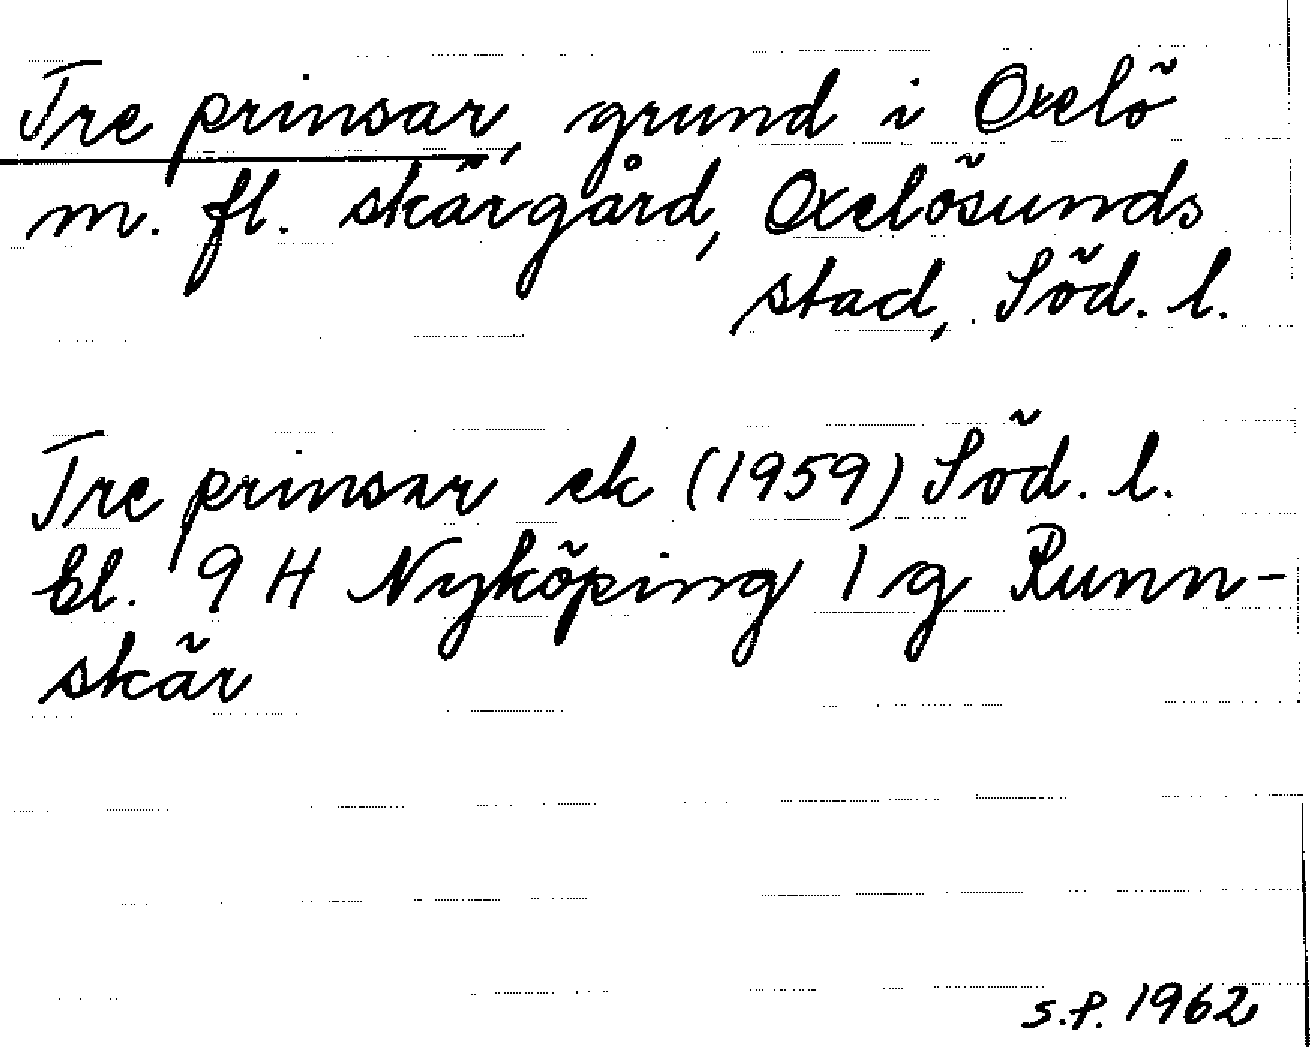 Tre prinsar, grund i Oxelö
m. fl. skärgård, Oxelösunds
stad, Söd. l.
Tre prinsar ek (1959) Söd. l.
bl. 9 H Nyköping 1 g Runn-
skär
s.f. 1962